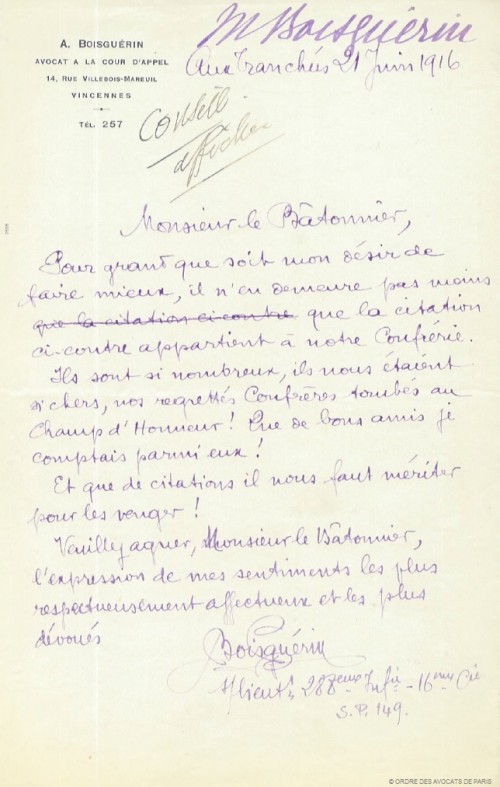 M Boisguérin
A. BOISGUÉRIN
AVOCAT A LA COUR D'APPEL
14, RUE VILLEBOIS-MAREUIL
VINCENNES
TÉL. 257
Aux Tranchées 21 Juin 1916
Conseil
afficher
Monsieur le Bâtonnier,
Pour grand que soit mon désir de
faire mieux, il n'en demeure pas moins
que la citation ci-contre que la citation
ci-contre appartient à notre Confrérie.
Ils sont si nombreux, ils nous étaient
si chers, nos regrettés Confrères tombés au
Champ d'Honneur ! Que de bons amis je
comptais parmi eux !
Et que de citations il nous faut mériter
pour les venger !
Veuillez agréer, Monsieur le Bâtonnier,
l'expression de mes sentiments les plus
respectueusement affectueux et les plus
dévoués
Boisguérin
S/lieutt 288eme Infie - 16eme Cie
S.P. 149.
© ORDRE DES AVOCATS DE PARIS